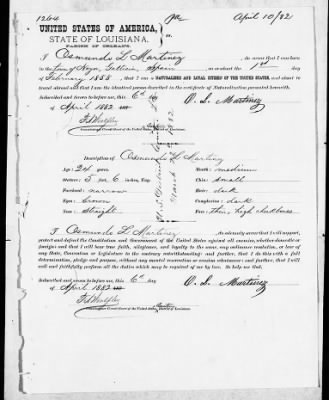 1264
Jr
April 10/82
UNITED STATES OF AMERICA,
STATE OF LOUISIANA.
PARISH OF ORLEANS.
I Osmundo L Martinez, do swear that I was born
in the town of Noya, Gallicia, Spain on or about the 1st day
of February 1858, that I am a NATURALIZED AND LOYAL CITIZEN OF THE UNITED STATES, and about to
travel abroad and that I am the identical person described in the certificate of Naturalization presented herewith.
Subscribed and sworn to before me this 6th day
of April 1882
O. L. Martinez
Commissioner Circuit Court of the United States, District of Louisiana.
March 1882
Description of Osmundo L Martinez
Age: 24 years. Mouth: medium
Stature: 5 feet 6 inches, Eng. Chin: small
Forehead: narrow Hair: dark
Eyes: brown Complexion: dark
Nose: straight Face: thin, high cheekbones
I Osmundo L Martinez do solemnly swear that I will support,
protect and defend the Constitution and Government of the United States against all enemies, whether domestic
or foreign; and that I will bear true faith, allegiance, and loyalty to the same, any ordinance, resolution, or law of
any State, Convention or Legislature to the contrary notwithstanding; and further, that I do this with a full
determination, pledge and purpose, without any mental reservation or evasion whatsoever; and further, that I will
well and faithfully perform all the duties which may be required of me by law. So help me God.
Subscribed and sworn to before me this 6th day
of April 1882
O. L. Martinez
Commissioner Circuit Court of the United States, District of Louisiana.